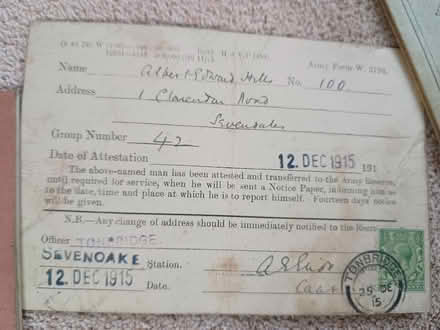 Army Form W. 3194.
Name Albert Edward Hills No. 100
Address 1 Clarendon Road
Sevenoaks
Group Number 42
Date of Attestation 12. DEC 1915 191
The above-named man has been attested and transferred to the Army Reserve
until required for service, when he will be sent a Notice Paper, informing him as
to the date, time and place at which he is to report himself. Fourteen days notice
will be given.
N.B.—Any change of address should be immediately notified to the Recru
Officer TONBRIDGE
SEVENOAKE Station.
12. DEC 1915 Date. Capt
TONBRIDGE
29 DE
15